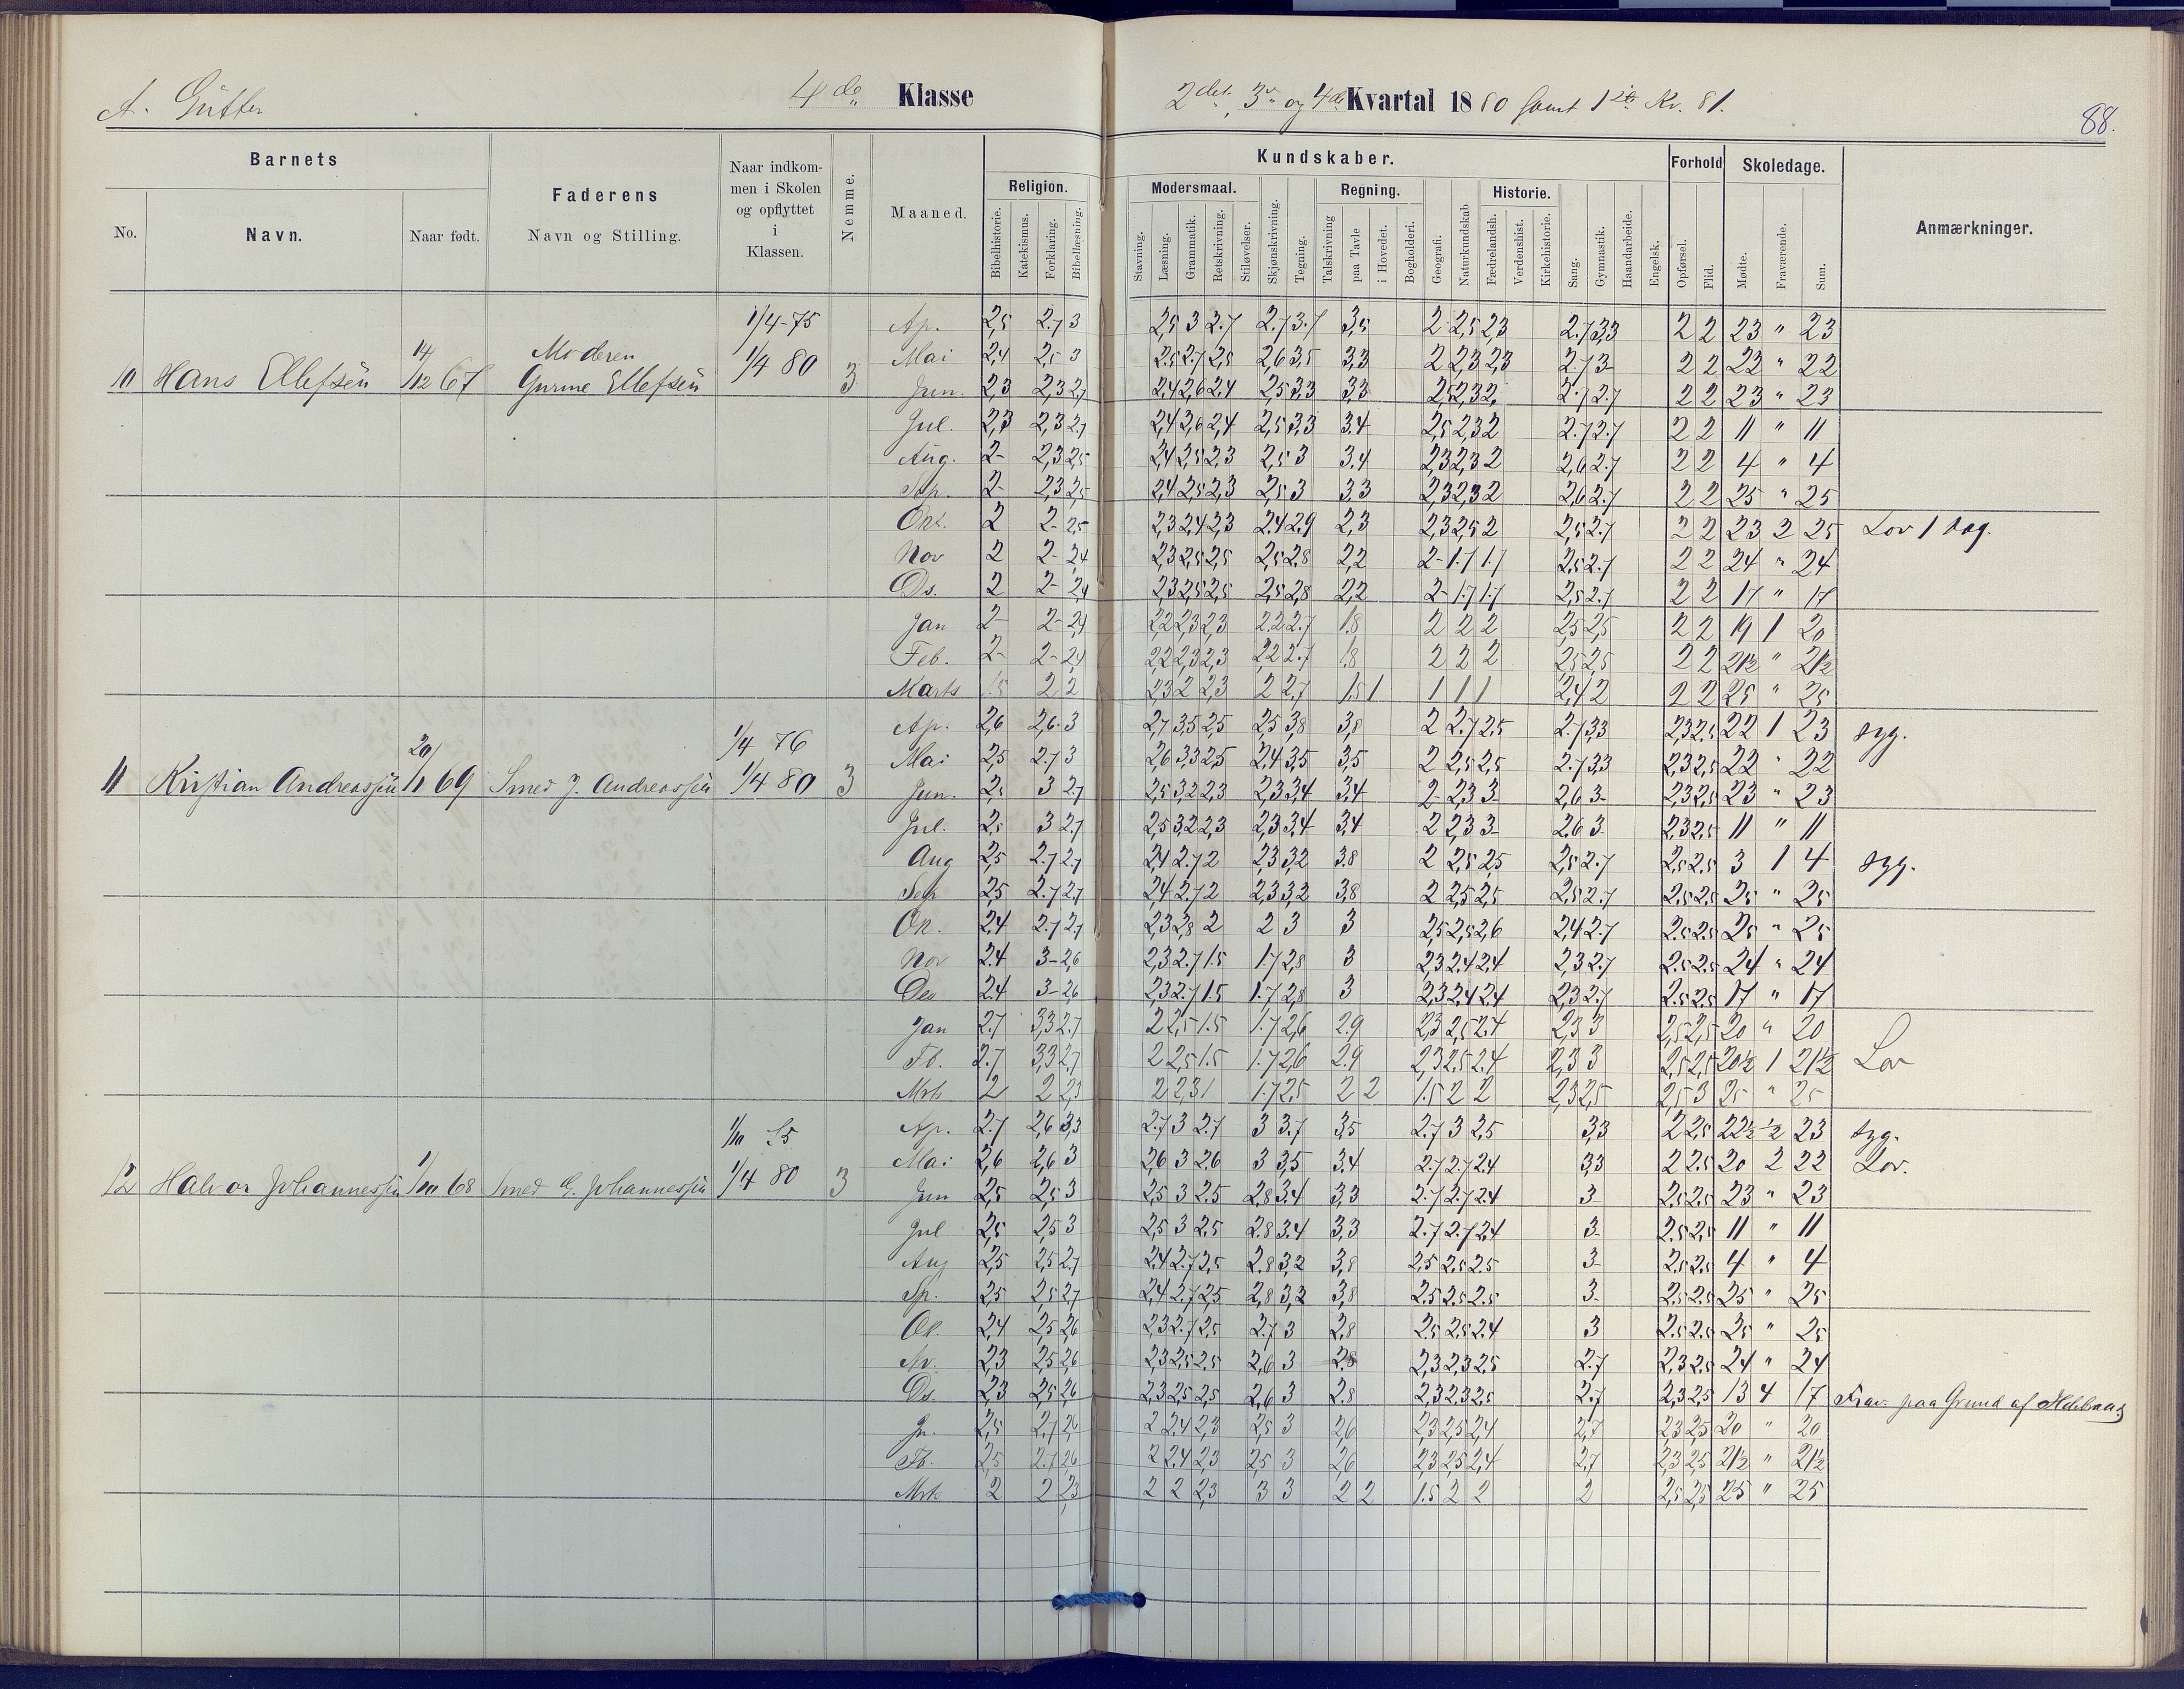 A. Gutter
4de Klasse
2det, 3die og 4de Kvartal 1880 samt 1ste Kv. 81.
88.
Barnets
Faderens
Naar indkom-
men i Skolen
og opflyttet
i
Klassen.
Nemme.
Maaned.
Kundskaber.
Forhold
Skoledage.
Anmærkninger.
No.
Navn.
Naar født.
Navn og Stilling.
Religion.
Modersmaal.
Regning.
Historie.
Bibelhistorie.
Katekismus.
Forklaring.
Bibellæsning.
Stavning.
Læsning.
Grammatik.
Retskrivning.
Stiløvelser.
Skjønskrivning.
Tegning.
Talskrivning
paa Tavle
i Hovedet.
Bogholderi.
Geografi.
Naturkundskab
Fædrelandsh.
Verdenshist.
Kirkehistorie.
Sang.
Gymnastik.
Haandarbeide.
Engelsk.
Opførsel.
Flid.
Mødte.
Fraværende.
Sum.
10 Hans Ellefsen 14/12 67 Moderen Gurine Ellefsen 1/4-75 1/4 80 3
Ap. 2,5 2.7 3 2,5 3 2.7 2.7 3.7 3,5 2 2,5 2,3 2.7 3,3 2 2 23 " 23
Mai 2,4 2,5 3 2,5 2.7 2,5 2,6 3,5 3,3 2 2,3 2,3 2.7 3- 2 2 22 " 22
Jun. 2,3 2,3 2,7 2,4 2,6 2,4 2,5 3,3 3,3 2,5 2,3 2, 2.7 2.7 2 2 23 " 23
Jul. 2,3 2,3 2,7 2,4 2,6 2,4 2,5 3,3 3,4 2,5 2,3 2 2.7 2.7 2 2 11 " 11
Aug. 2- 2,3 2,5 2,4 2,5 2,3 2,5 3 3,4 2,3 2,3 2 2,6 2.7 2 2 4 " 4
Sep. 2- 2,3 2,5 2,4 2,5 2,3 2,5 3 3,3 2,3 2,3 2 2,6 2.7 2 2 25 " 25
Okt. 2 2- 2,5 2,3 2,4 2,3 2,4 2,9 2,3 2,3 2,5 2 2,5 2.7 2 2 23 2 25 Lov 1 dag.
Nov 2 2- 2,4 2,3 2,5 2,5 2,5 2,8 2,2 2- 1.7 1.7 2,5 2.7 2 2 24 " 24
Ds. 2 2- 2,4 2,3 2,5 2,5 2,5 2,8 2,2 2- 1.7 1.7 2,5 2.7 2 2 17 " 17
Jan 2- 2- 2,4 2,2 2,3 2,3 2,2 2.7 1.8 2 2 2 2,5 2,5 2 2 19 1 20
Feb. 2- 2- 2,4 2,2 2,3 2,3 2,2 2.7 1.8 2 2 2 2,5 2,5 2 2 21½ " 21½
Marts 1.5 2 2 2,3 2 2,3 2 2,7 1.5 1 1 1 1 2,4 2 2 2 25 " 25
11 Kristian Andreassen 20/11 69 Smed J. Andreassen 1/4 76 1/4 80 3
Ap. 2,6 2,6 3 2,7 3,5 2,5 2,5 3,8 3,8 2 2.7 2,5 2.7 3,3 2,3 2,5 22 1 23 syg.
Mai 2,5 2.7 3 2,6 3,3 2,5 2,4 3,5 3,5 2 2,5 2,5 2.7 3,3 2,3 2,5 22 " 22
Jun. 2,5 3 2,7 2,5 3,2 2,3 2,3 3,4 3,4 2- 2,3 3- 2,6 3- 2,3 2,5 23 " 23
Jul. 2,5 3 2.7 2,5 3,2 2,3 2,3 3,4 3,4 2 2,3 3- 2,6 3 2,3 2,5 11 " 11
Aug 2,5 2.7 2,7 2,4 2.7 2 2,3 3,2 3,8 2 2,5 2,5 2,5 2.7 2,5 2,5 3 1 4 syg.
Sep 2,5 2.7 2,7 2,4 2.7 2 2,3 3,2 3,8 2 2,5 2,5 2,5 2.7 2,5 2,5 25 " 25
Ok. 2,4 2.7 2,7 2,3 2,8 2 2 3 3 2,5 2,5 2,6 2,4 2.7 2,5 2,5 25 " 25
Nov 2.4 3- 2,6 2,3 2.7 1.5 1.7 2,8 3 2,3 2,4 2,4 2,3 2.7 2,5 2,5 24 " 24
Des 2.4 3- 2,6 2,3 2.7 1.5 1.7 2,8 3 2,3 2,4 2,4 2,3 2.7 2,5 2,5 17 " 17
Jan 2.7 3,3 2.7 2 2,5 1.5 1.7 2,6 2.9 2,3 2,5 2.4 2,3 3 2,5 2,5 20 " 20
Fb. 2.7 3,3 2,7 2 2,5 1.5 1.7 2,6 2.9 2,3 2,5 2.4 2,3 3 2,5 2,5 20½ 1 21½ Lov
Mrts 2 2 2,3 2 2,3 1 1.7 2,5 2 2 1.5 2 2 2,3 2,5 2,5 3 25 " 25
12 Halvor Johannessen 1/10 68 Smed G. Johannessen 1/10 75 1/4 80 3
Ap. 2.7 2,6 3,3 2.7 3 2.7 3 3.7 3,5 2.7 3 2,5 3,3 2 2,5 22½ ½ 23 syg.
Mai 2,6 2,6 3 2,6 3 2,6 3 3,5 3.4 2.7 2.7 2.4 3,3 2 2.5 20 2 22 Lov.
Jun 2,5 2,5 3 2,5 3 2.5 2.8 3.4 3,3 2.7 2.7 2.4 3 2,5 2,5 23 " 23
Jul 2,5 2,5 3 2,5 3 2.5 2.8 3.4 3,3 2.7 2.7 2.4 3- 2,5 2,5 11 " 11
Aug 2,5 2,5 2.7 2.4 2.7 2,5 2.8 3,2 3,8 2,5 2,5 2.5 3- 2,5 2,5 4 " 4
Sp. 2,5 2,5 2,7 2,4 2.7 2,5 2,8 3,2 3,8 2.5 2.5 2.5 3- 2,5 2,5 25 " 25
Ok. 2,4 2,5 2,6 2,3 2.7 2,5 2.7 3 2,8 2,5 2,5 2.4 3 2,5 2,5 25 " 25
Nv. 2,3 2,5 2,6 2,3 2,5 2,5 2,6 3 2.8 2,3 2,3 2,5 2.7 2,3 2,5 24 " 24
Ds. 2,3 2,5 2,6 2,3 2,5 2,5 2,6 3 2.8 2,3 2,3 2,5 2.7 2,3 2,5 13 4 17 Frav. paa Grund af
Jn. 2,5 2.7 2,6 2 2.4 2,3 2,5 3 2,6 2,3 2,5 2,4 2,7 2,3 2,5 20 " 20
Fb. 2,5 2.7 2,6 2 2.4 2,3 2,5 3 2,6 2,3 2,5 2,4 2,7 2,3 2,5 21½ " 21½
Mrts 2 2 2,3 2 2 2,3 3 3 2 2 1.5 2 2 2 2,5 2,5 25 " 25